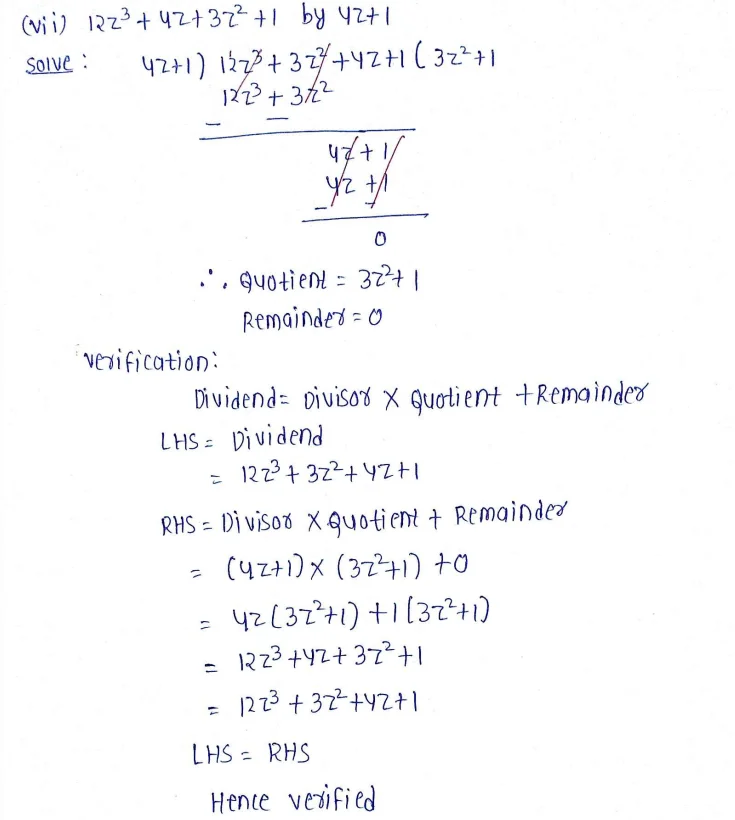 (vii) 12z³ + 4z + 3z² + 1 by 4z+1
Solve : 4z+1) 12z³ + 3z² + 4z + 1 ( 3z² + 1
12z³ + 3z²
– –
4z + 1
4z + 1
– –
0
∴ Quotient = 3z² + 1
Remainder = 0
Verification:
Dividend = Divisor × Quotient + Remainder
LHS = Dividend
= 12z³ + 3z² + 4z + 1
RHS = Divisor × Quotient + Remainder
= (4z+1) × (3z²+1) + 0
= 4z(3z²+1) + 1(3z²+1)
= 12z³ + 4z + 3z² + 1
= 12z³ + 3z² + 4z + 1
LHS = RHS
Hence verified